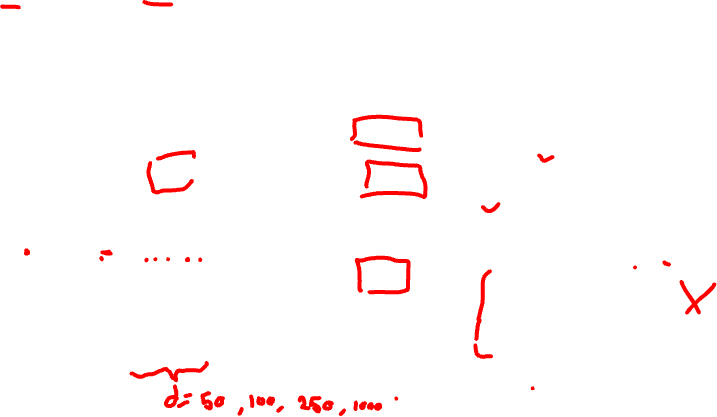 d = 50, 100, 250, 1000
X